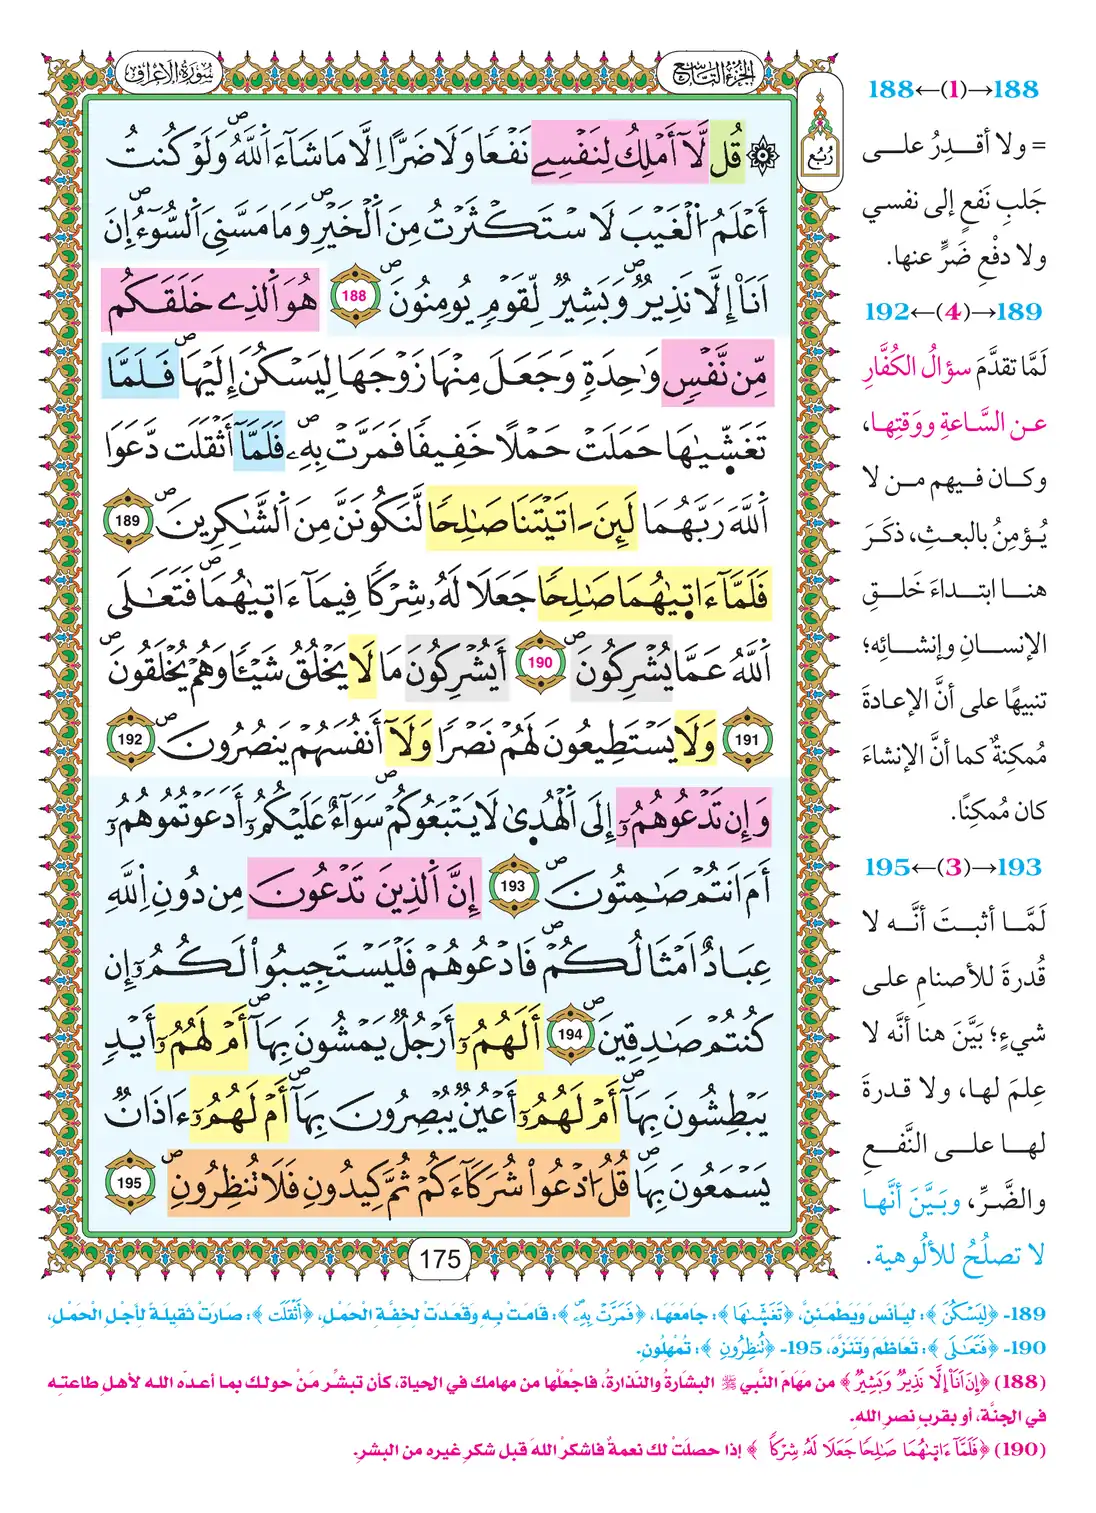 سُورَةُ الْأَعْرَافِ
الجُزْءُ التَّاسِعُ
رُبُع
قُل لَّآ أَمْلِكُ لِنَفْسِے نَفْعٗا وَلَا ضَرًّا اِلَّا مَا شَآءَ اَللَّهُۖ وَلَوْ كُنتُ
أَعْلَمُ اُلْغَيْبَ لَاسْتَكْثَرْتُ مِنَ اَلْخَيْرِۖ وَمَا مَسَّنِيَ اَلسُّوٓءُۖ إِنَ
اَنَا۠ إِلَّا نَذِيرٞ وَبَشِيرٞ لِّقَوْمٖ يُومِنُونَۖ 188 هُوَ اَلذِے خَلَقَكُم
مِّن نَّفْسٖ وَٰحِدَةٖ وَجَعَلَ مِنْهَا زَوْجَهَا لِيَسْكُنَ إِلَيْهَاۖ فَلَمَّا
تَغَشّ۪ىٰهَا حَمَلَتْ حَمْلًا خَفِيفٗا فَمَرَّتْ بِهِۦۖ فَلَمَّآ أَثْقَلَت دَّعَوَا
اَللَّهَ رَبَّهُمَا لَئِنَ اٰتَيْتَنَا صَٰلِحٗا لَّنَكُونَنَّ مِنَ اَلشَّٰكِرِينَۖ 189
فَلَمَّآ ءَات۪ىٰهُمَا صَٰلِحٗا جَعَلَا لَهُۥ شِرْكٗا فِيمَآ ءَات۪ىٰهُمَاۖ فَتَعَٰلَى
اَللَّهُ عَمَّا يُشْرِكُونَۖ 190 أَيُشْرِكُونَ مَا لَا يَخْلُقُ شَيْـٔٗا وَهُمْ يُخْلَقُونَۖ
191 وَلَا يَسْتَطِيعُونَ لَهُمْ نَصْرٗا وَلَآ أَنفُسَهُمْ يَنصُرُونَۖ 192
وَإِن تَدْعُوهُمُۥٓ إِلَى اَلْهُد۪ىٰ لَا يَتْبَعُوكُمْۖ سَوَآءٌ عَلَيْكُمُۥٓ أَدَعَوْتُمُوهُمُۥٓ
أَمَ اَنتُمْ صَٰمِتُونَۖ 193 إِنَّ اَلذِينَ تَدْعُونَ مِن دُونِ اِللَّهِ
عِبَادٌ اَمْثَالُكُمْۖ فَادْعُوهُمْ فَلْيَسْتَجِيبُواْ لَكُمُۥٓ إِن
كُنتُمْ صَٰدِقِينَۖ 194 أَلَهُمُۥٓ أَرْجُلٞ يَمْشُونَ بِهَآۖ أَمْ لَهُمُۥٓ أَيْدٖ
يَبْطِشُونَ بِهَآۖ أَمْ لَهُمُۥٓ أَعْيُنٞ يُبْصِرُونَ بِهَآۖ أَمْ لَهُمُۥٓ ءَاذَانٞ
يَسْمَعُونَ بِهَاۖ قُلُ اُدْعُواْ شُرَكَآءَكُمْ ثُمَّ كِيدُونِ فَلَا تُنظِرُونِۖ 195
175
188←(1)→188
= ولا أقـدِرُ علـى
جَلبِ نَفعٍ إلى نفسي
ولا دفْعِ ضَرٍّ عنها.
192←(4)→189
لَمَّا تقدَّمَ سؤالُ الكُفَّارِ
عـن السَّاعةِ ووَقتِها،
وكـان فيهم مـن لا
يُـؤمِنُ بالبعـثِ، ذكَـرَ
هنـا ابتـداءَ خَلـقِ
الإنسـانِ وإنشـائِه؛
تنبيهًا على أنَّ الإعادةَ
مُمكِنةٌ كما أنَّ الإنشاءَ
كان مُمكِنًا.
195←(3)→193
لَمَّـا أثبـتَ أنَّـه لا
قُدرةَ للأصنامِ علـى
شيءٍ؛ بَيَّنَ هنا أنَّه لا
عِلمَ لهـا، ولا قـدرةَ
لهـا علـى النَّفـعِ
والضَّـرِّ، وبَيَّـنَ أنَّهـا
لا تصلُحُ للألُوهية.
189- ﴿لِيَسْكُنَ﴾: ليَأنَسَ وَيَطْمَئِنَّ، ﴿تَغَشّ۪ىٰهَا﴾: جامَعَهَا، ﴿فَمَرَّتْ بِهِۦۖ﴾: قامَتْ بِهِ وقَعَدَتْ لخِفَّةِ الحَمْلِ، ﴿أَثْقَلَت﴾: صَارَتْ ثَقِيلَةً لأجْلِ الْحَمْلِ،
190- ﴿فَتَعَٰلَى﴾: تَعَاظَمَ وَتَنَزَّهَ، 195- ﴿تُنظِرُونِ﴾: تُمْهِلُونِ.
(188) ﴿إِنَ اَنَا۠ إِلَّا نَذِيرٞ وَبَشِيرٞ﴾ من مَهَامِّ النَّبي ﷺ البشارةُ والنّذارةُ، فاجْعَلْها من مهامك في الحياة، كأن تبشِّر مَنْ حولك بما أعدّه الله لأهلِ طاعتِه
في الجنَّة، أو بقربِ نصرِ اللهِ.
(190) ﴿فَلَمَّآ ءَات۪ىٰهُمَا صَٰلِحٗا جَعَلَا لَهُۥ شِرْكٗا﴾ إذا حصلَتْ لك نعمةٌ فاشكرْ اللهَ قبل شكرِ غيره من البشرِ.